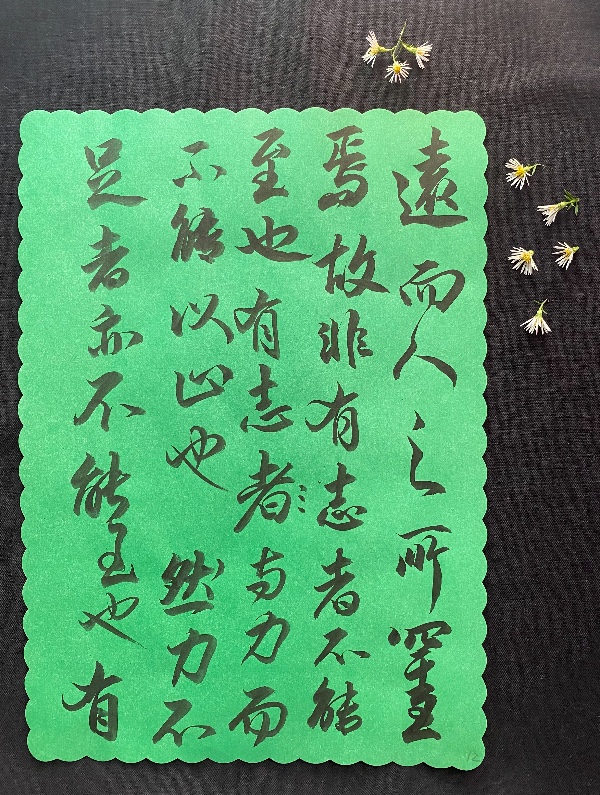 遠而人之所罕至
焉故非有志者不能
至也有志者与力而
不能以止也 然力不
足者亦不能至也有